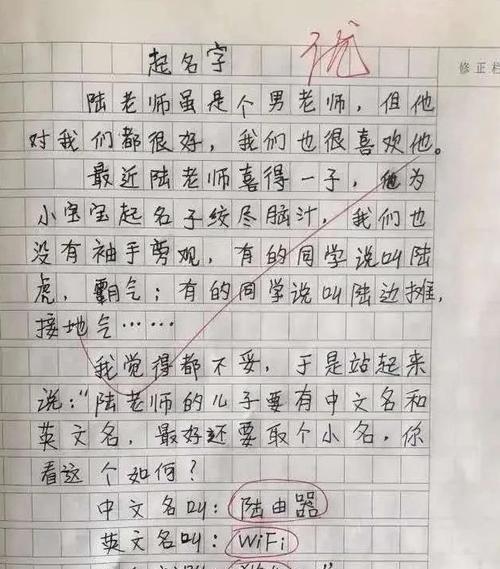 起名字
优
修正栏
陆老师虽是个男老师，但他
对我们都很好，我们也很喜欢他。
最近陆老师喜得一子，他为
小宝宝起名子绞尽脑汁，我们也
没有袖手剪观，有的同学说叫陆
虎，霸气；有的同学说叫陆边摊，
接地气……
我觉得都不妥，于是站起来
说：“陆老师的儿子要有中文名和
英文名，最好还要取个小名，你
看这个如何？
中文名叫：陆由器
英文名叫：WiFi